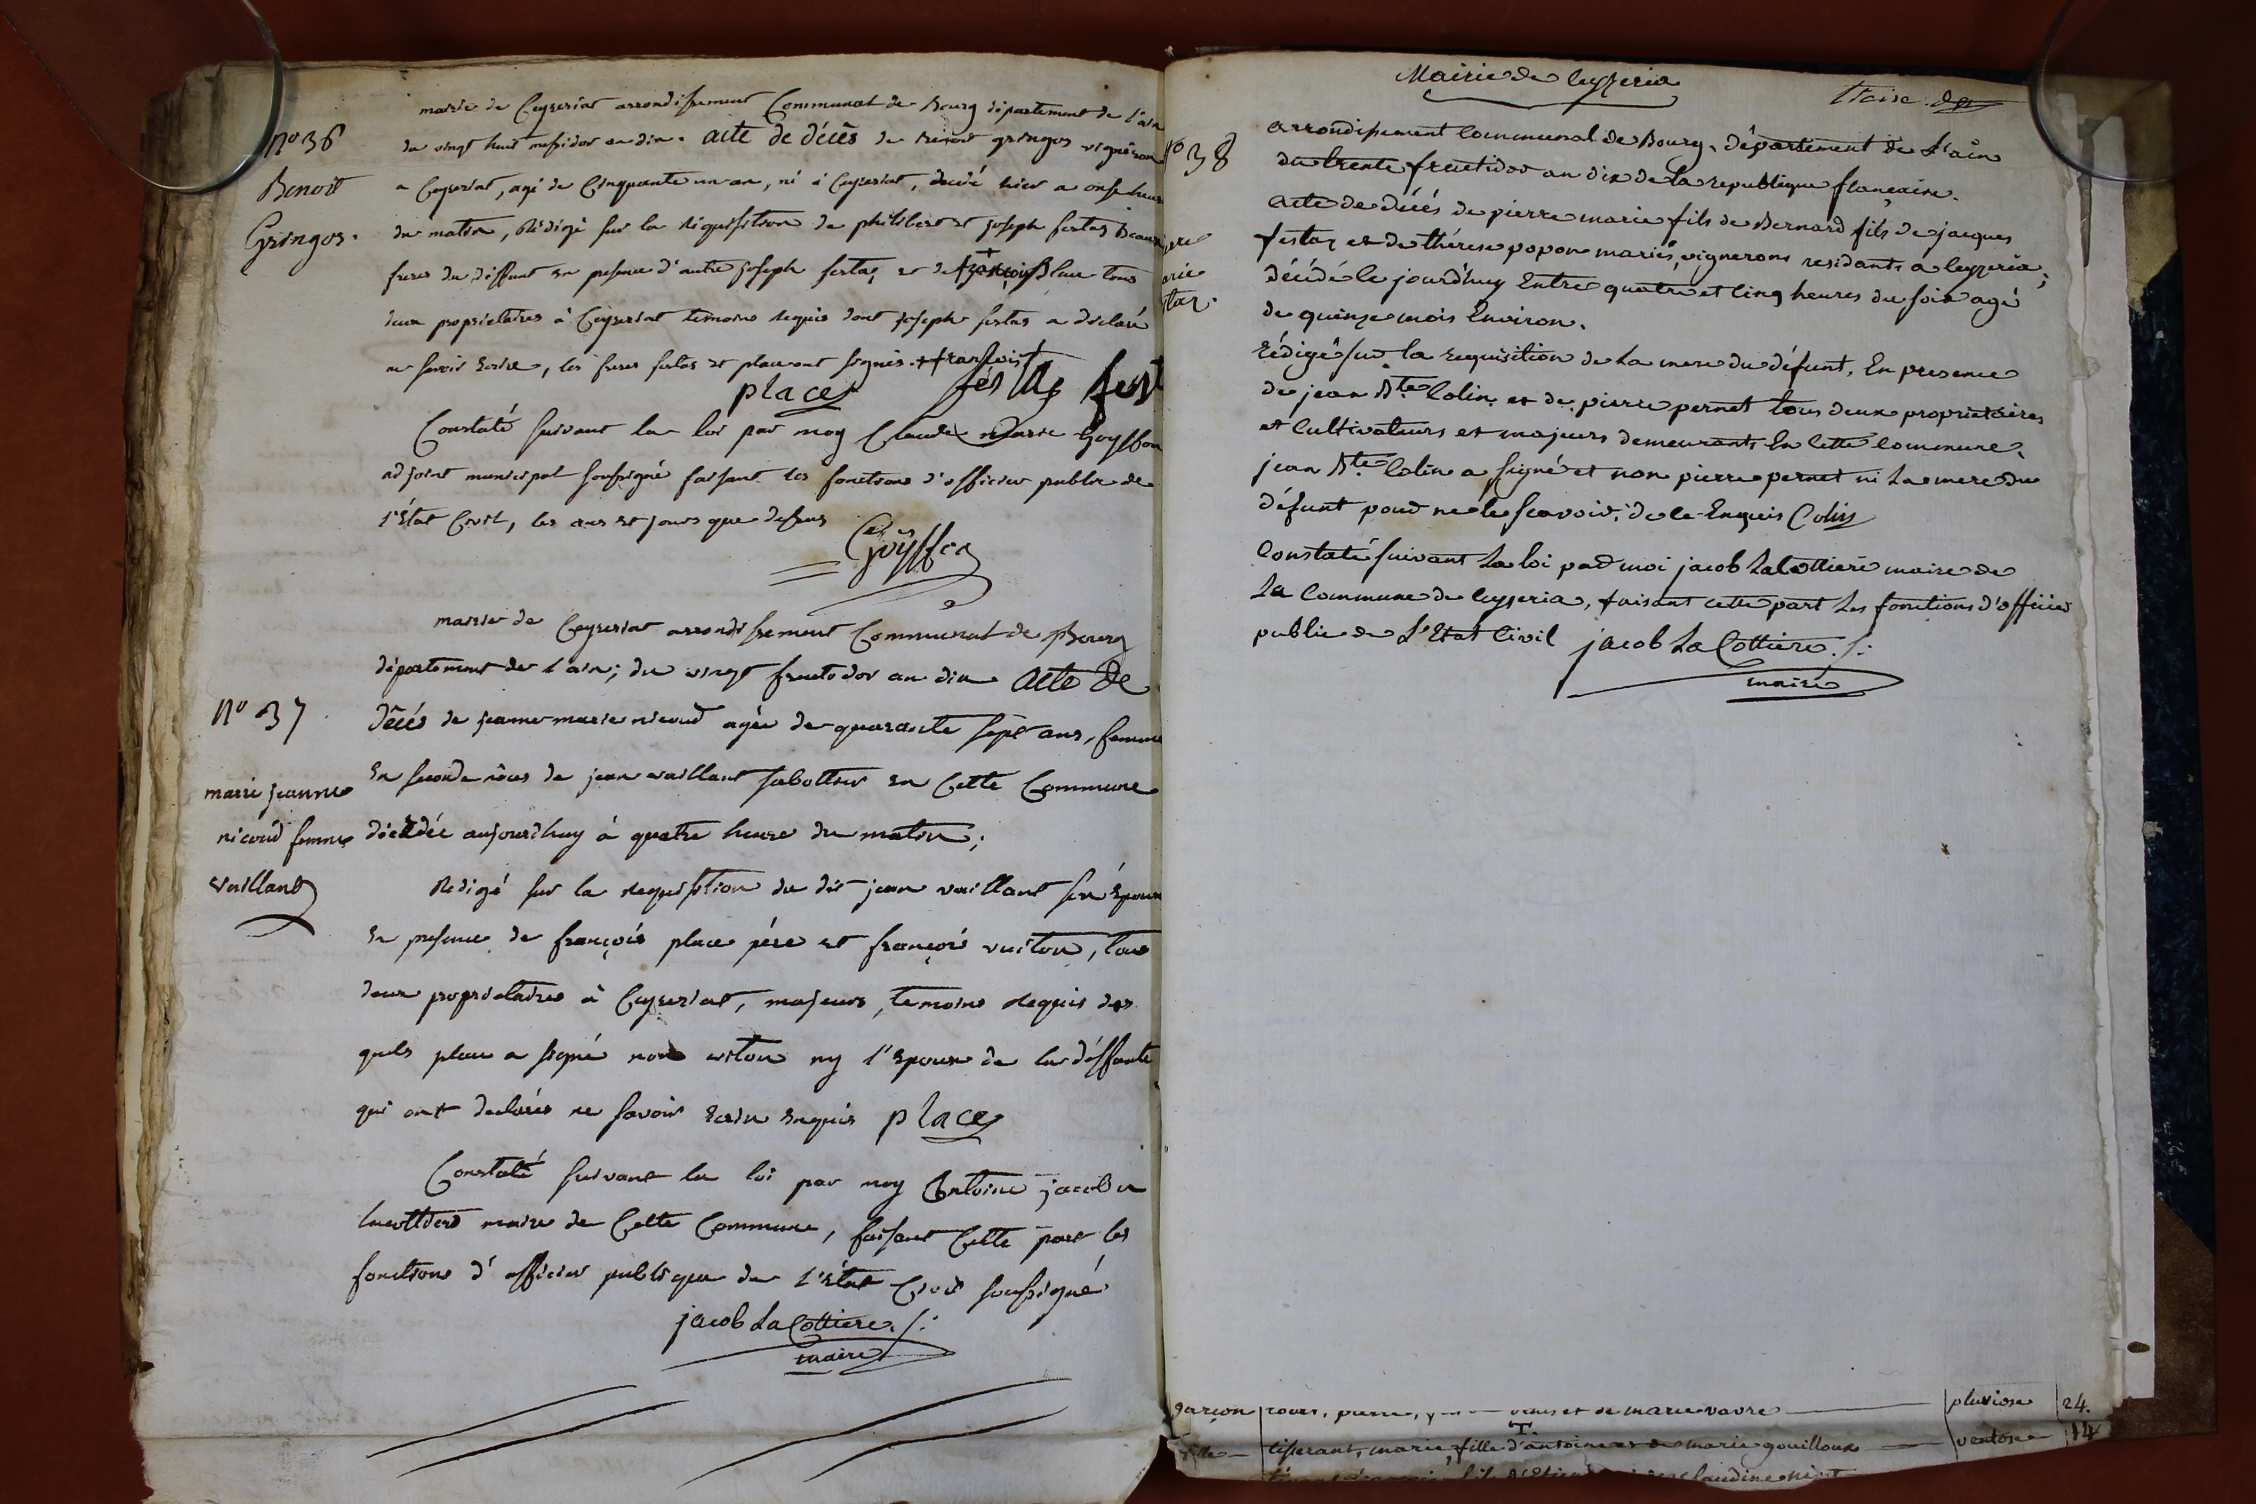 mairie de Ceyseriat arrondissement Communal de Bourg département de l'ain
no 36
du vingt huit messidor an dix. acte de décès de Benoit gringos vigneron
Benoit
a Ceyseriat, agé de Cinquante un an, né à Ceyseriat, décédé hier a onse heure
Gringos.
du matin, Rédigé sur la Réquisition de philibert et joseph festas Beaux
freres du deffunt en presence d'autre joseph festaz et de françois place tous
deux proprietaires à Ceyseriat temoins requis dont joseph festas a déclaré
ne savoir Ecrire, les freres festas et place ont signés. + françois +
place festas fest
Constaté suivant la loi par moy Claude Marie Goyffon
adjoint municipal soussigné faisant les fonctions d'officier public de
l'Etat Civil, les ans et jours que dessus
Goÿffon
mairie de Ceyseriat arrondissement Communal de Bourg
département de l'ain; du vingt fructodor an dix acte de
no 37
décés de jeanne marie nicoud agée de quarante sept ans, femme
en seconde nôces de jean vaillant sabottier en Cette Commune
marie jeanne
nicoud femme
décédée aujourdhuy à quatre heure du matin;
vaillant
Rédigé sur la requisition du dit jean vaillant son Epoux
en presence de françois place pére et françois vuiton, tous
deux proprietaires à Ceyseriat, majeurs, temoins requis des
quels place a signé non vuiton ny l'Epoux de la deffunte
qui ont declarés ne savoir Ecrire Enquis place
Constaté suivant la loi par moy Antoine jacob
lacottiere maire de Cette Commune, faisant Cette part les
fonctions d'officier publique de l'état Civil soussigné
jacob La Cottiere
maire
Mairie de Ceyzeria
no 38
arrondissement Communal de Bourg, département de L'ain
du trente fructidor an dix de la republique française.
acte de décés de pierre marie fils de Bernard fils de jacques
festaz et de thérese popon mariés, vignerons residants a Ceyzeria,
décédé le jourd'huy Entre quatre et Cinq heures du soir agé
de quinze mois Environ.
rédigé sur la requisition de La mere du défunt, En presence
de jean Bte. Colin et de pierre pernet tous deux proprietaires
et Cultivateurs et majeurs demeurants En Cette Commune,
jean Bte. Colin a signé et non pierre pernet ni La mere du
défunt pour ne le scavoir, de ce Enquis Colin
Constaté suivant La loi par moi jacob LaCottiere maire de
La Commune de Ceyzeria, faisant cette part Les fonctions d'officier
public de L'Etat Civil jacob La Cottiere
maire
garçon pluviose 24.
T.
fille tisserant, marie fille d'antoine et de marie gouilloux ventose 14